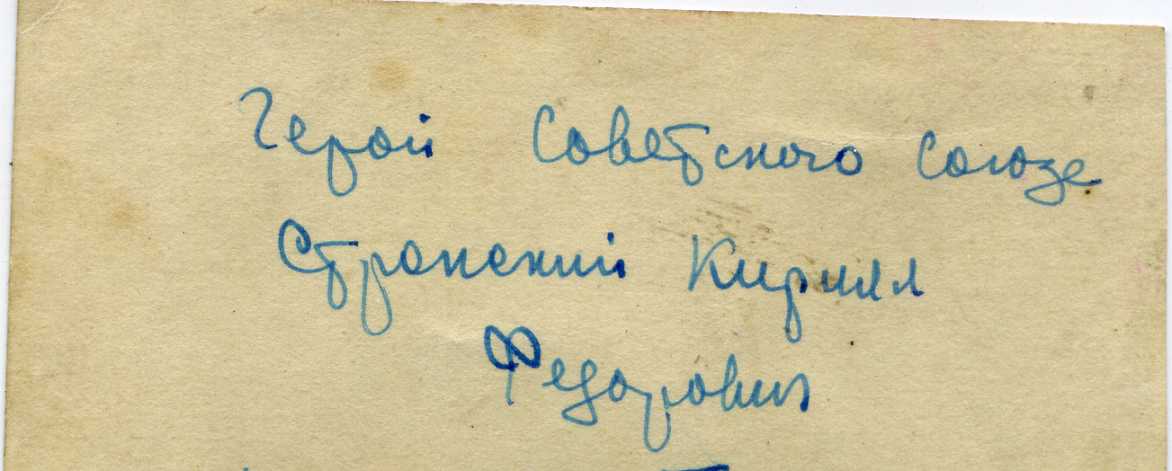 Герой Советского Союза
Странский Кирилл
Федорович